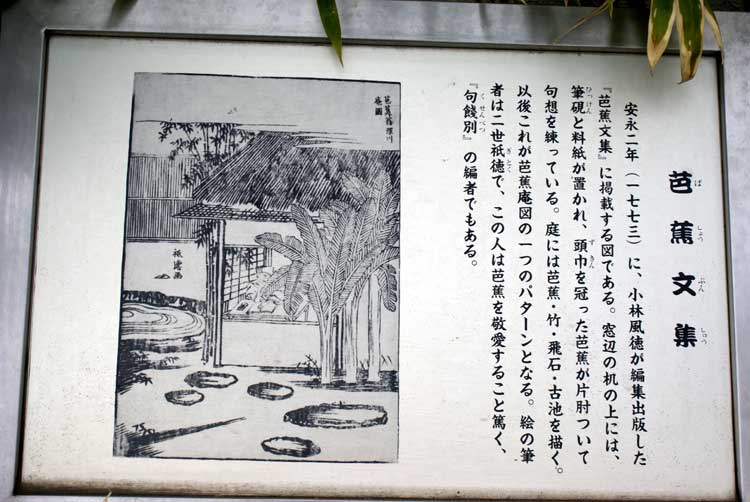 芭蕉文集
ばしょうぶんしゅう
安永二年（一七七三）に、小林風徳が編集出版した
『芭蕉文集』に掲載する図である。窓辺の机の上には、
筆硯と料紙が置かれ、頭巾を冠った芭蕉が片肘ついて
ひっけん
ずきん
句想を練っている。庭には芭蕉・竹・飛石・古池を描く。
以後これが芭蕉庵図の一つのパターンとなる。絵の筆
者は二世祇徳で、この人は芭蕉を敬愛すること篤く、
ぎとく
『句餞別』の編者でもある。
くせんべつ
芭蕉翁深川
庵圖